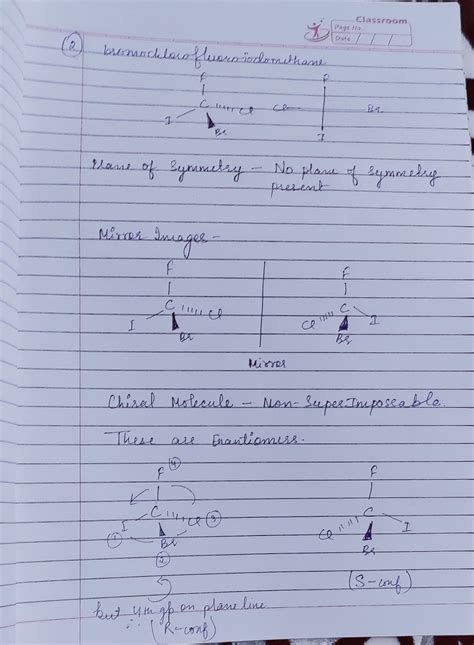 Classroom
Page No.
Date / /
② bromochlorofluoroiodomethane
F F
C Cl Cl Br
I Br I
Plane of Symmetry – No plane of symmetry
present
Mirror Images –
F F
C Cl C
I Cl I
Br Br
Mirror
Chiral Molecule – Non-SuperImpossable.
These are Enantiomers.
④
F F
I C Cl ③ C
① Br Cl I
② Br
(S-conf)
but 4th gp on plane line
∴ (R-conf)